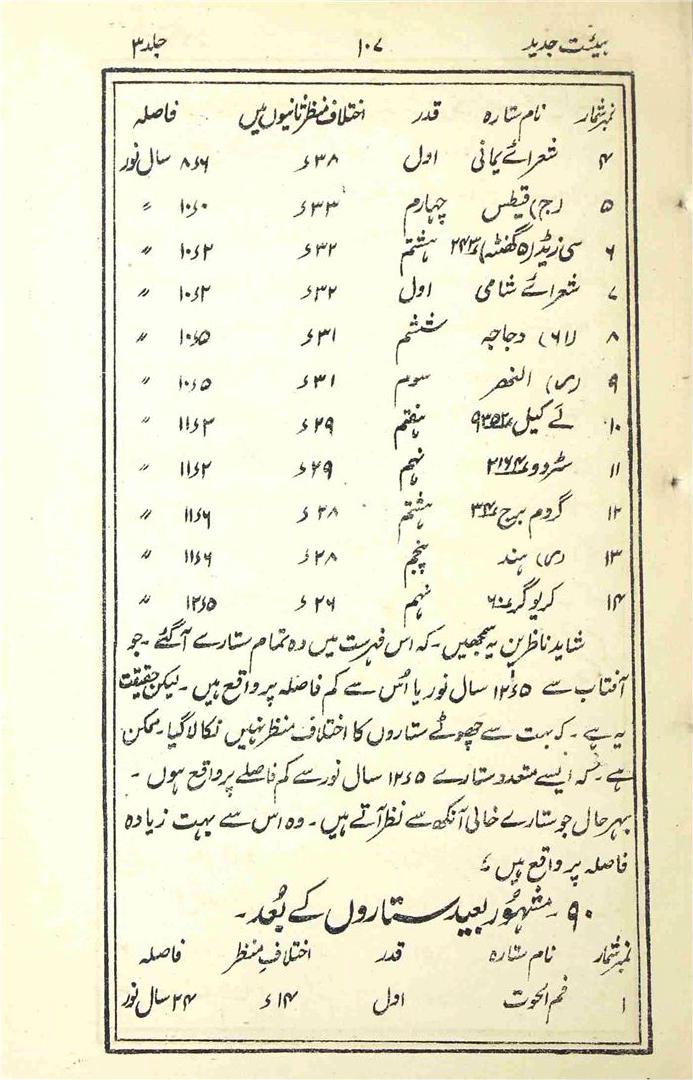 ہیئت جدید ۱۰۷ جلد ۳
نمبر شمار نام ستارہ قدر اختلاف منظر ثانیوں میں فاصلہ
۴ شعرائے یمانی اول ۳۸ء ۸ء۶ سال نور
۵ (ج) قیطس چہارم ۳۳ء ۱۰ء۰ ″
۶ سی زیڈ (۵ گھنٹہ) ۲۴۳ء ہشتم ۳۲ء ۱۰ء۲ ″
۷ شعرائے شامی اول ۳۲ء ۱۰ء۲ ″
۸ (۶۱) دجاجہ ششم ۳۱ء ۱۰ء۵ ″
۹ (ی) النھر سوم ۳۱ء ۱۰ء۵ ″
۱۰ لے کیل ۹۳۵۲ء ہفتم ۲۹ء ۱۱ء۲ ″
۱۱ سٹرووء ۲۱۶۴ نہم ۲۹ء ۱۱ء۲ ″
۱۲ گروم برج ۳۴ء ہشتم ۲۸ء ۱۱ء۶ ″
۱۳ (ی) ہند پنجم ۲۸ء ۱۱ء۶ ″
۱۴ کریوگر ۶۰ء نہم ۲۶ء ۱۲ء۵ ″
شاید ناظرین یہ سمجھیں۔ کہ اس فہرست میں وہ تمام ستارے آگئے۔ جو
آفتاب سے ۱۲ء۵ سال نور یا اُس سے کم فاصلہ پر واقع ہیں۔ لیکن حقیقت
یہ ہے۔ کہ بہت سے چھوٹے ستاروں کا اختلاف منظر نہیں نکالا گیا۔ ممکن
ہے۔ کہ ایسے متعدد ستارے ۱۲ء۵ سال نور سے کم فاصلے پر واقع ہوں۔
بہرحال جو ستارے خالی آنکھ سے نظر آتے ہیں۔ وہ اس سے بہت زیادہ
فاصلہ پر واقع ہیں ؛
۹۰۔ مشہُور بعید ستاروں کے بُعد۔
نمبر شمار نام ستارہ قدر اختلافِ منظر فاصلہ
۱ فم الحوت اول ۱۴ء ۲۴ سال نور